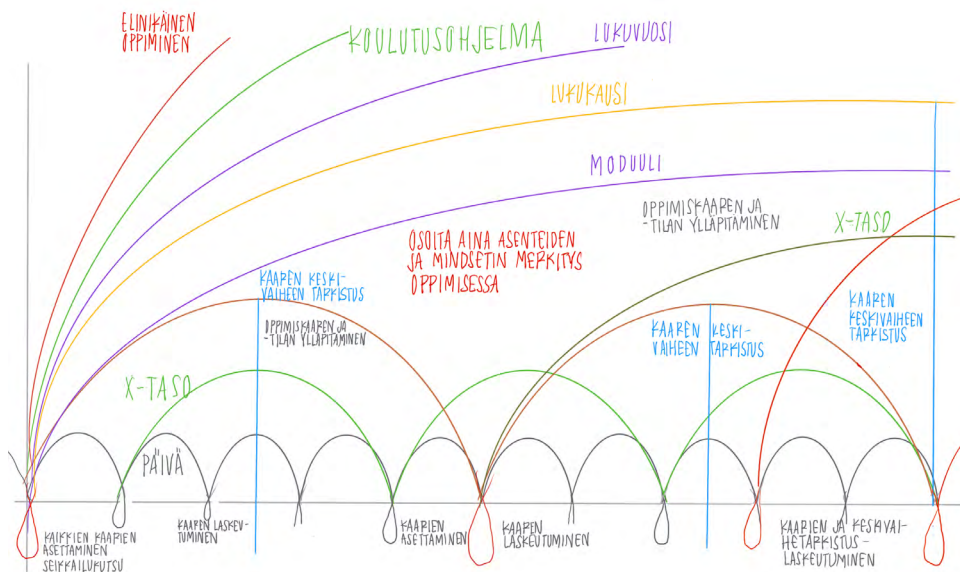 ELINIKÄINEN
OPPIMINEN
KOULUTUSOHJELMA
LUKUVUOSI
LUKUKAUSI
MODUULI
OPPIMISKAAREN JA
-TILAN YLLÄPITAMINEN
X-TASO
OSOITA AINA ASENTEIDEN
JA MINDSETIN MERKITYS
OPPIMISESSA
KAAREN KESKI-
VAIHEEN TARKISTUS
OPPIMISKAAREN JA
-TILAN YLLÄPITAMINEN
KAAREN KESKI-
VAIHEEN TARKISTUS
KAAREN
KESKIVAIHEEN
TARKISTUS
X-TASO
PÄIVÄ
KAIKKIEN KAARIEN
ASETTAMINEN
SEIKKAILUKUTSU
KAAREN LASKEU-
TUMINEN
KAARIEN
ASETTAMINEN
KAAREN
LASKEUTUMINEN
KAARIEN JA KESKIVAI-
HETARKISTUS-
LASKEUTUMINEN